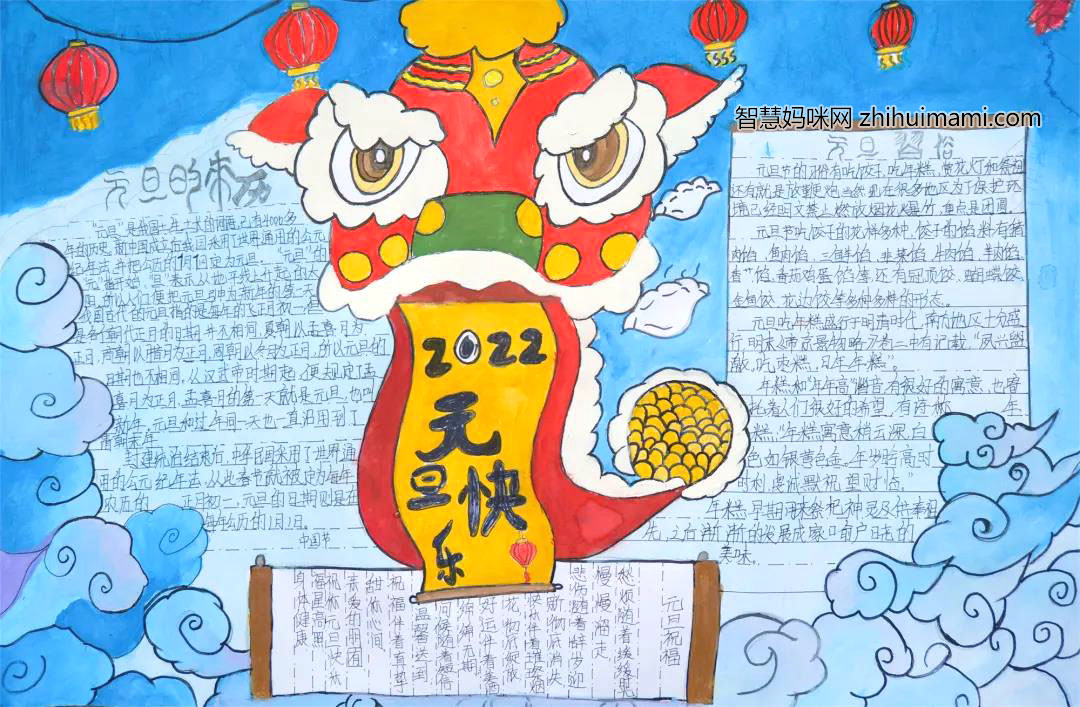 智慧妈咪网 zhihuimami.com
元旦的来历
"元旦"是我国
年的历史,新中国成立后我国采用了世界通用的公元
纪年法,并把公历的1月1日定为元旦。
日,所以人们便把元旦列为新年的第一天
我国古代的元旦指的是每年的
是各个朝代正月的日期并不相同,夏朝以孟喜月为
正月,商朝以腊月为正月,周朝以冬月为正月,所以元旦的
日期也不相同,从汉武帝时期起,便规定了孟
喜月为正月,孟喜月的第一天就是元旦,也叫
新年,元旦和过年同一天也一直沿用到了
清朝末年
封建统治结束后,中华民国采用了世界通
用的公元纪年法,从此春节就被定为每年
农历的 正月初一,元旦的日期则是在
每年公历的1月1日。
中国节
2022
元旦快乐
元旦习俗
元旦节的习俗有吃饺子,吃年糕,赏花灯和祭祖
还有就是放鞭炮,当然现在很多地区为了保护环
境已经明文禁止燃放烟花爆竹,重点是团圆。
元旦节吃饺子的花样多种,饺子的馅料有猪
肉馅,鱼肉馅,三鲜馅,韭菜馅,牛肉馅,羊肉馅,
香 馅,番茄鸡蛋馅等,还有冠顶饺,蝴蝶饺,
金鱼饺,花边饺等多种多样的形态。
元旦吃年糕盛行于明清时代,南方地区十分盛
行,明末《帝京景物略》卷二中有记载,"夙兴盥
漱,吃枣糕,日年年糕。"
年糕和"年年高"谐音,有很好的寓意,也寄
托着人们很好的希望,有诗称 年
糕,"年糕寓意稍云深,白
色如银黄色金,年岁盼高时
时利,虔诚默祝望财临。"
年糕早期用来祭祀神灵及供奉祖
先,之后渐渐的发展成家口的户日吃的
美味。
元旦祝福
愁烦随着缓缓
慢慢溜走
悲伤随着辞岁迎
新彻底消失
快乐伴着璀璨烟
花彻底绽放
好运伴着
惊倒无期
问候伴着短信
温馨送到
祝福伴着真挚
甜你心间
亲爱的朋友
祝你元旦快乐
福星高照
身体健康